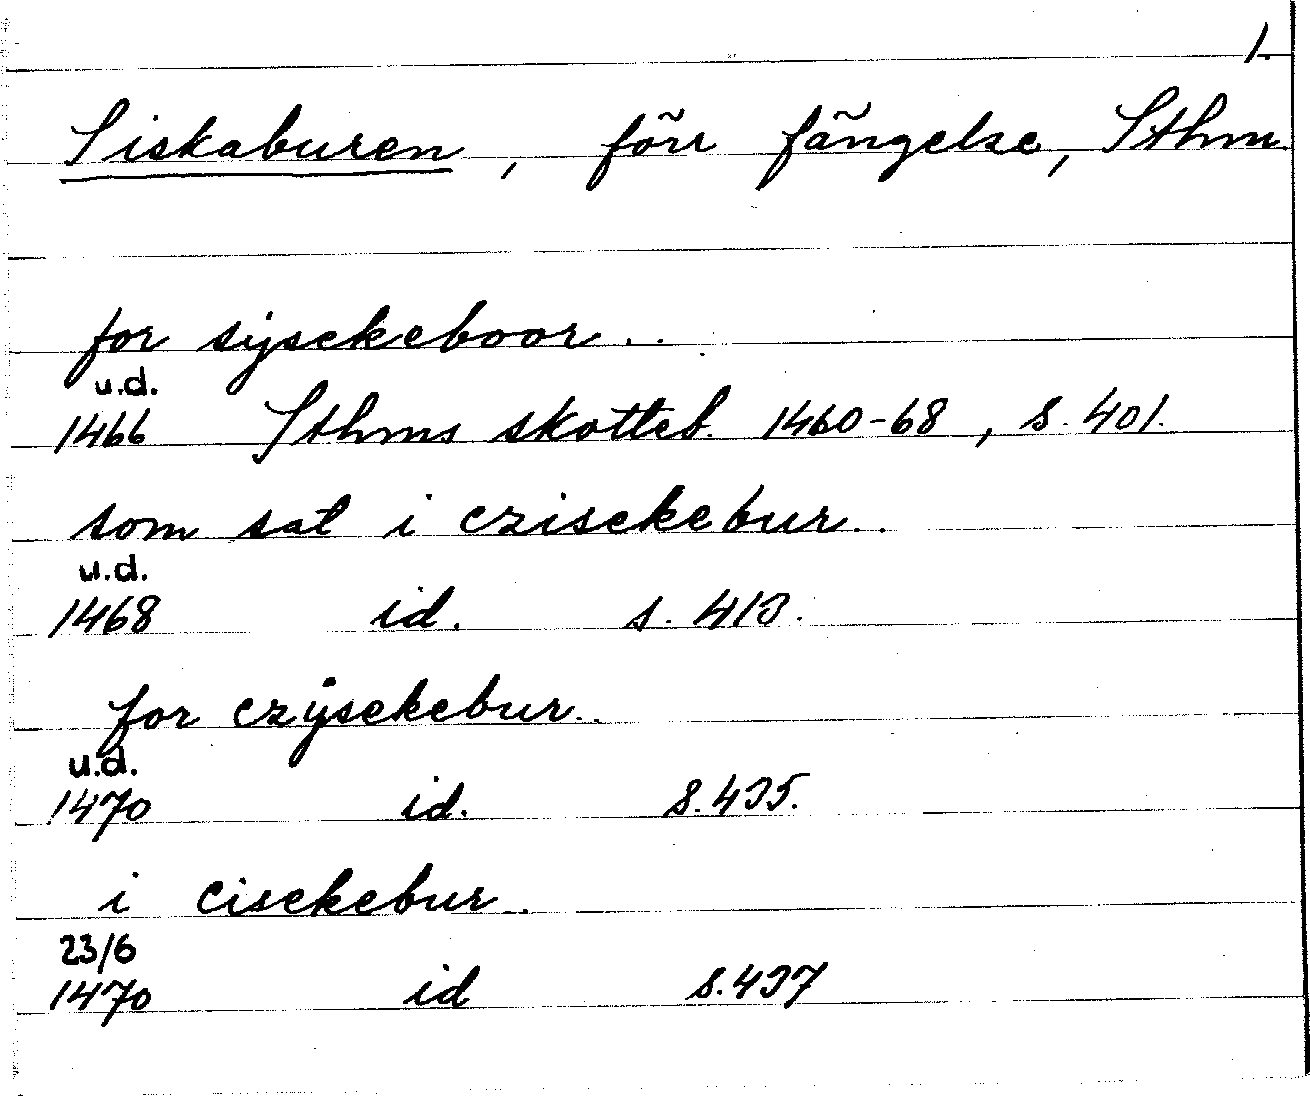 1.
Siskaburen, förr fängelse, Sthm.
for sijsekeboor..
u.d.
1466 Sthms skotteb. 1460-68, s. 401.
som sat i czisekebur..
u.d.
1468 id. s. 413.
for czÿsekebur..
u.d.
1470 id. s. 435.
i cisekebur..
23/6
1470 id s. 437